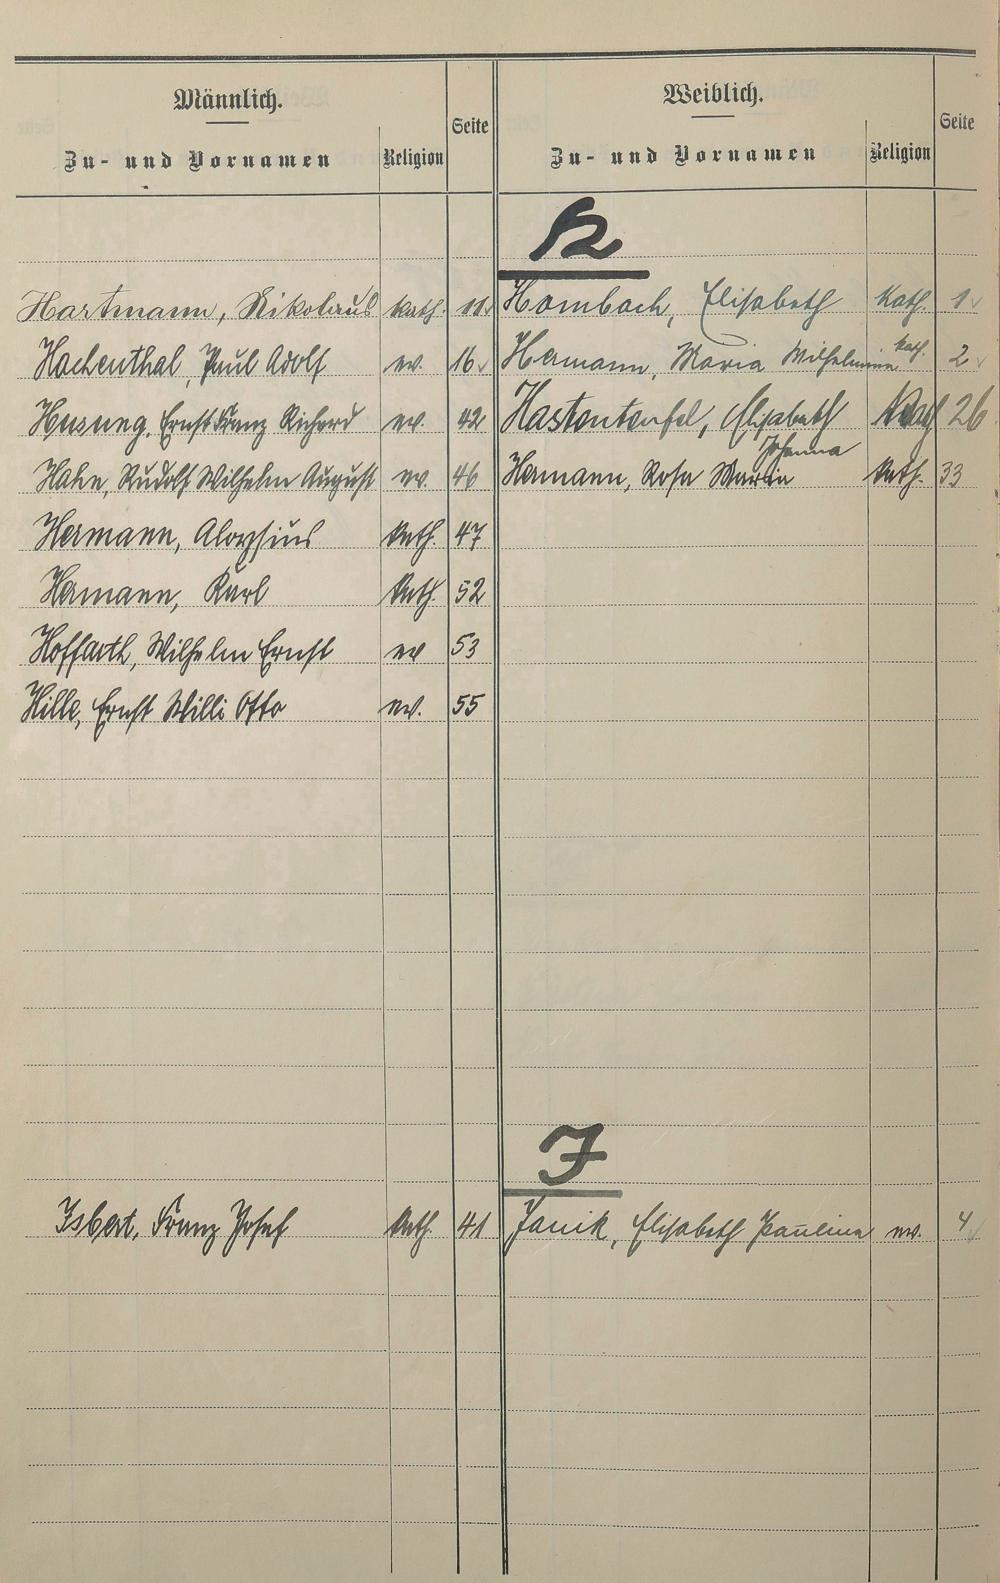 Männlich.
Zu- und Vornamen Religion Seite
Weiblich.
Zu- und Vornamen Religion Seite
H
Hartmann, Nikolaus kath. 11
Hachenthal, Paul Adolf ev. 16
Husung, Ernst Franz Richard ev. 42
Hahn, Rudolf Wilhelm August ev. 46
Hermann, Aloysius kath. 47
Hermann, Karl kath. 52
Hoffarth, Wilhelm Ernst ev 53
Hille, Ernst Willi Otto ev. 55
Hombach, Elisabeth Kath. 1
Hermann, Maria Wilhelmine kath. 2
Hastenteufel, Elisabeth Kath 26
Johanna
Hermann, Rosa Maria kath. 33
J
Isbert, Franz Josef kath. 41
Janik, Elisabeth Paulina ev. 4